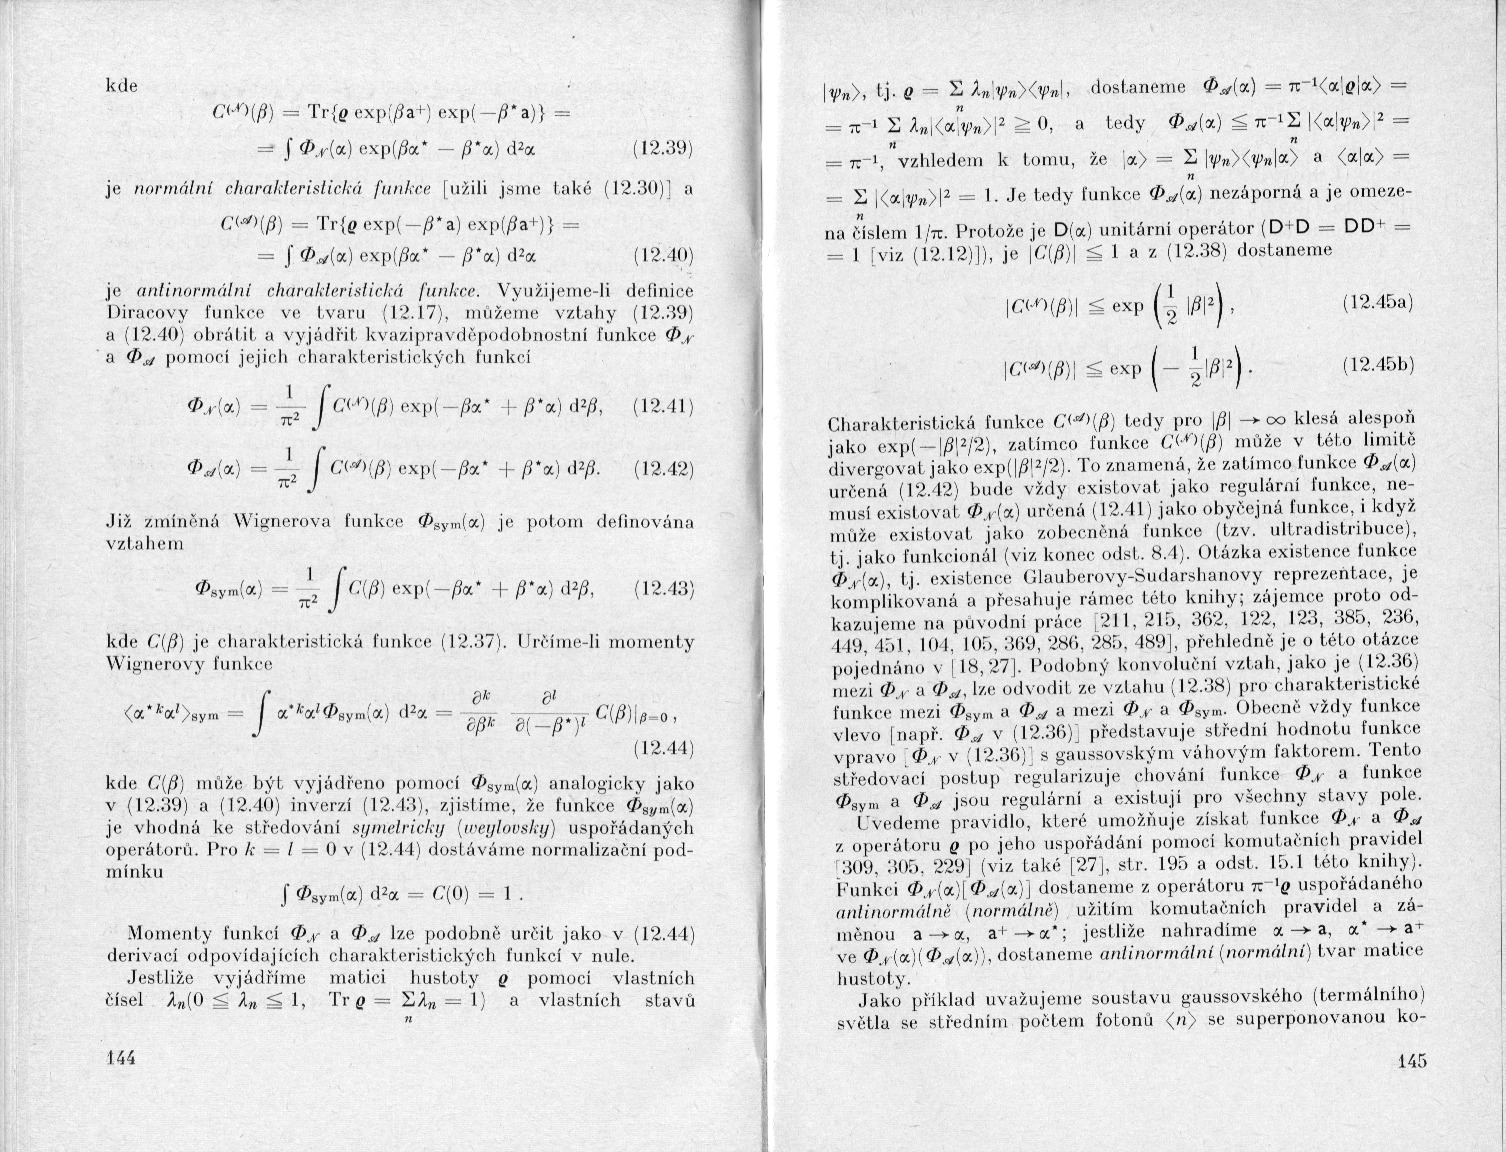 kde
C⁽𝒩⁾(β) = Tr{ϱ exp(βa⁺) exp(−β*a)} =
= ∫ Φ_𝒩(α) exp(βα* − β*α) d²α (12.39)
je normální charakteristická funkce [užili jsme také (12.30)] a
C⁽𝒜⁾(β) = Tr{ϱ exp(−β*a) exp(βa⁺)} =
= ∫ Φ_𝒜(α) exp(βα* − β*α) d²α (12.40)
je antinormální charakteristická funkce. Využijeme-li definice
Diracovy funkce ve tvaru (12.17), můžeme vztahy (12.39)
a (12.40) obrátit a vyjádřit kvazipravděpodobnostní funkce Φ_𝒩
a Φ_𝒜 pomocí jejich charakteristických funkcí
Φ_𝒩(α) = 1/π² ∫ C⁽𝒩⁾(β) exp(−βα* + β*α) d²β, (12.41)
Φ_𝒜(α) = 1/π² ∫ C⁽𝒜⁾(β) exp(−βα* + β*α) d²β. (12.42)
Již zmíněná Wignerova funkce Φ_sym(α) je potom definována
vztahem
Φ_sym(α) = 1/π² ∫ C(β) exp(−βα* + β*α) d²β, (12.43)
kde C(β) je charakteristická funkce (12.37). Určíme-li momenty
Wignerovy funkce
⟨α*ᵏαˡ⟩_sym = ∫ α*ᵏαˡΦ_sym(α) d²α = ∂ᵏ/∂βᵏ ∂ˡ/∂(−β*)ˡ C(β)|_β=0 ,
(12.44)
kde C(β) může být vyjádřeno pomocí Φ_sym(α) analogicky jako
v (12.39) a (12.40) inverzí (12.43), zjistíme, že funkce Φ_sym(α)
je vhodná ke středování symetricky (weylovsky) uspořádaných
operátorů. Pro k = l = 0 v (12.44) dostáváme normalizační pod-
mínku
∫ Φ_sym(α) d²α = C(0) = 1 .
Momenty funkcí Φ_𝒩 a Φ_𝒜 lze podobně určit jako v (12.44)
derivací odpovídajících charakteristických funkcí v nule.
Jestliže vyjádříme matici hustoty ϱ pomocí vlastních
čísel λₙ(0 ≦ λₙ ≦ 1, Tr ϱ = Σₙ λₙ = 1) a vlastních stavů
144
|ψₙ⟩, tj. ϱ = Σₙ λₙ|ψₙ⟩⟨ψₙ|, dostaneme Φ_𝒜(α) = π⁻¹⟨α|ϱ|α⟩ =
= π⁻¹ Σₙ λₙ|⟨α|ψₙ⟩|² ≧ 0, a tedy Φ_𝒜(α) ≦ π⁻¹ Σₙ |⟨α|ψₙ⟩|² =
= π⁻¹, vzhledem k tomu, že |α⟩ = Σₙ |ψₙ⟩⟨ψₙ|α⟩ a ⟨α|α⟩ =
= Σₙ |⟨α|ψₙ⟩|² = 1. Je tedy funkce Φ_𝒜(α) nezáporná a je omeze-
na číslem 1/π. Protože je D(α) unitární operátor (D⁺D = DD⁺ =
= 1 [viz (12.12)]), je |C(β)| ≦ 1 a z (12.38) dostaneme
|C⁽𝒩⁾(β)| ≦ exp (1/2 |β|²) , (12.45a)
|C⁽𝒜⁾(β)| ≦ exp (− 1/2 |β|²) . (12.45b)
Charakteristická funkce C⁽𝒜⁾(β) tedy pro |β| → ∞ klesá alespoň
jako exp(−|β|²/2), zatímco funkce C⁽𝒩⁾(β) může v této limitě
divergovat jako exp(|β|²/2). To znamená, že zatímco funkce Φ_𝒜(α)
určená (12.42) bude vždy existovat jako regulární funkce, ne-
musí existovat Φ_𝒩(α) určená (12.41) jako obyčejná funkce, i když
může existovat jako zobecněná funkce (tzv. ultradistribuce),
tj. jako funkcionál (viz konec odst. 8.4). Otázka existence funkce
Φ_𝒩(α), tj. existence Glauberovy-Sudarshanovy reprezentace, je
komplikovaná a přesahuje rámec této knihy; zájemce proto od-
kazujeme na původní práce [211, 215, 362, 122, 123, 385, 236,
449, 451, 104, 105, 369, 286, 285, 489], přehledně je o této otázce
pojednáno v [18, 27]. Podobný konvoluční vztah, jako je (12.36)
mezi Φ_𝒩 a Φ_𝒜, lze odvodit ze vztahu (12.38) pro charakteristické
funkce mezi Φ_sym a Φ_𝒜 a mezi Φ_𝒩 a Φ_sym. Obecně vždy funkce
vlevo [např. Φ_𝒜 v (12.36)] představuje střední hodnotu funkce
vpravo [Φ_𝒩 v (12.36)] s gaussovským váhovým faktorem. Tento
středovací postup regularizuje chování funkce Φ_𝒩 a funkce
Φ_sym a Φ_𝒜 jsou regulární a existují pro všechny stavy pole.
Uvedeme pravidlo, které umožňuje získat funkce Φ_𝒩 a Φ_𝒜
z operátoru ϱ po jeho uspořádání pomocí komutačních pravidel
[309, 305, 229] (viz také [27], str. 195 a odst. 15.1 této knihy).
Funkci Φ_𝒩(α)[Φ_𝒜(α)] dostaneme z operátoru π⁻¹ϱ uspořádaného
antinormálně (normálně) užitím komutačních pravidel a zá-
měnou a → α, a⁺ → α*; jestliže nahradíme α → a, α* → a⁺
ve Φ_𝒩(α)(Φ_𝒜(α)), dostaneme antinormální (normální) tvar matice
hustoty.
Jako příklad uvažujeme soustavu gaussovského (termálního)
světla se středním počtem fotonů ⟨n⟩ se superponovanou ko-
145